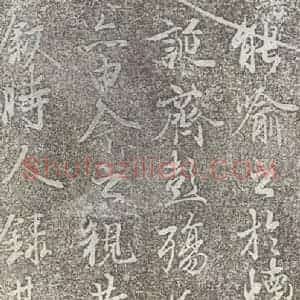 能喻之於懷
誕齊彭殤
亦由今之視昔
敘時人錄其
Shufazidian.com